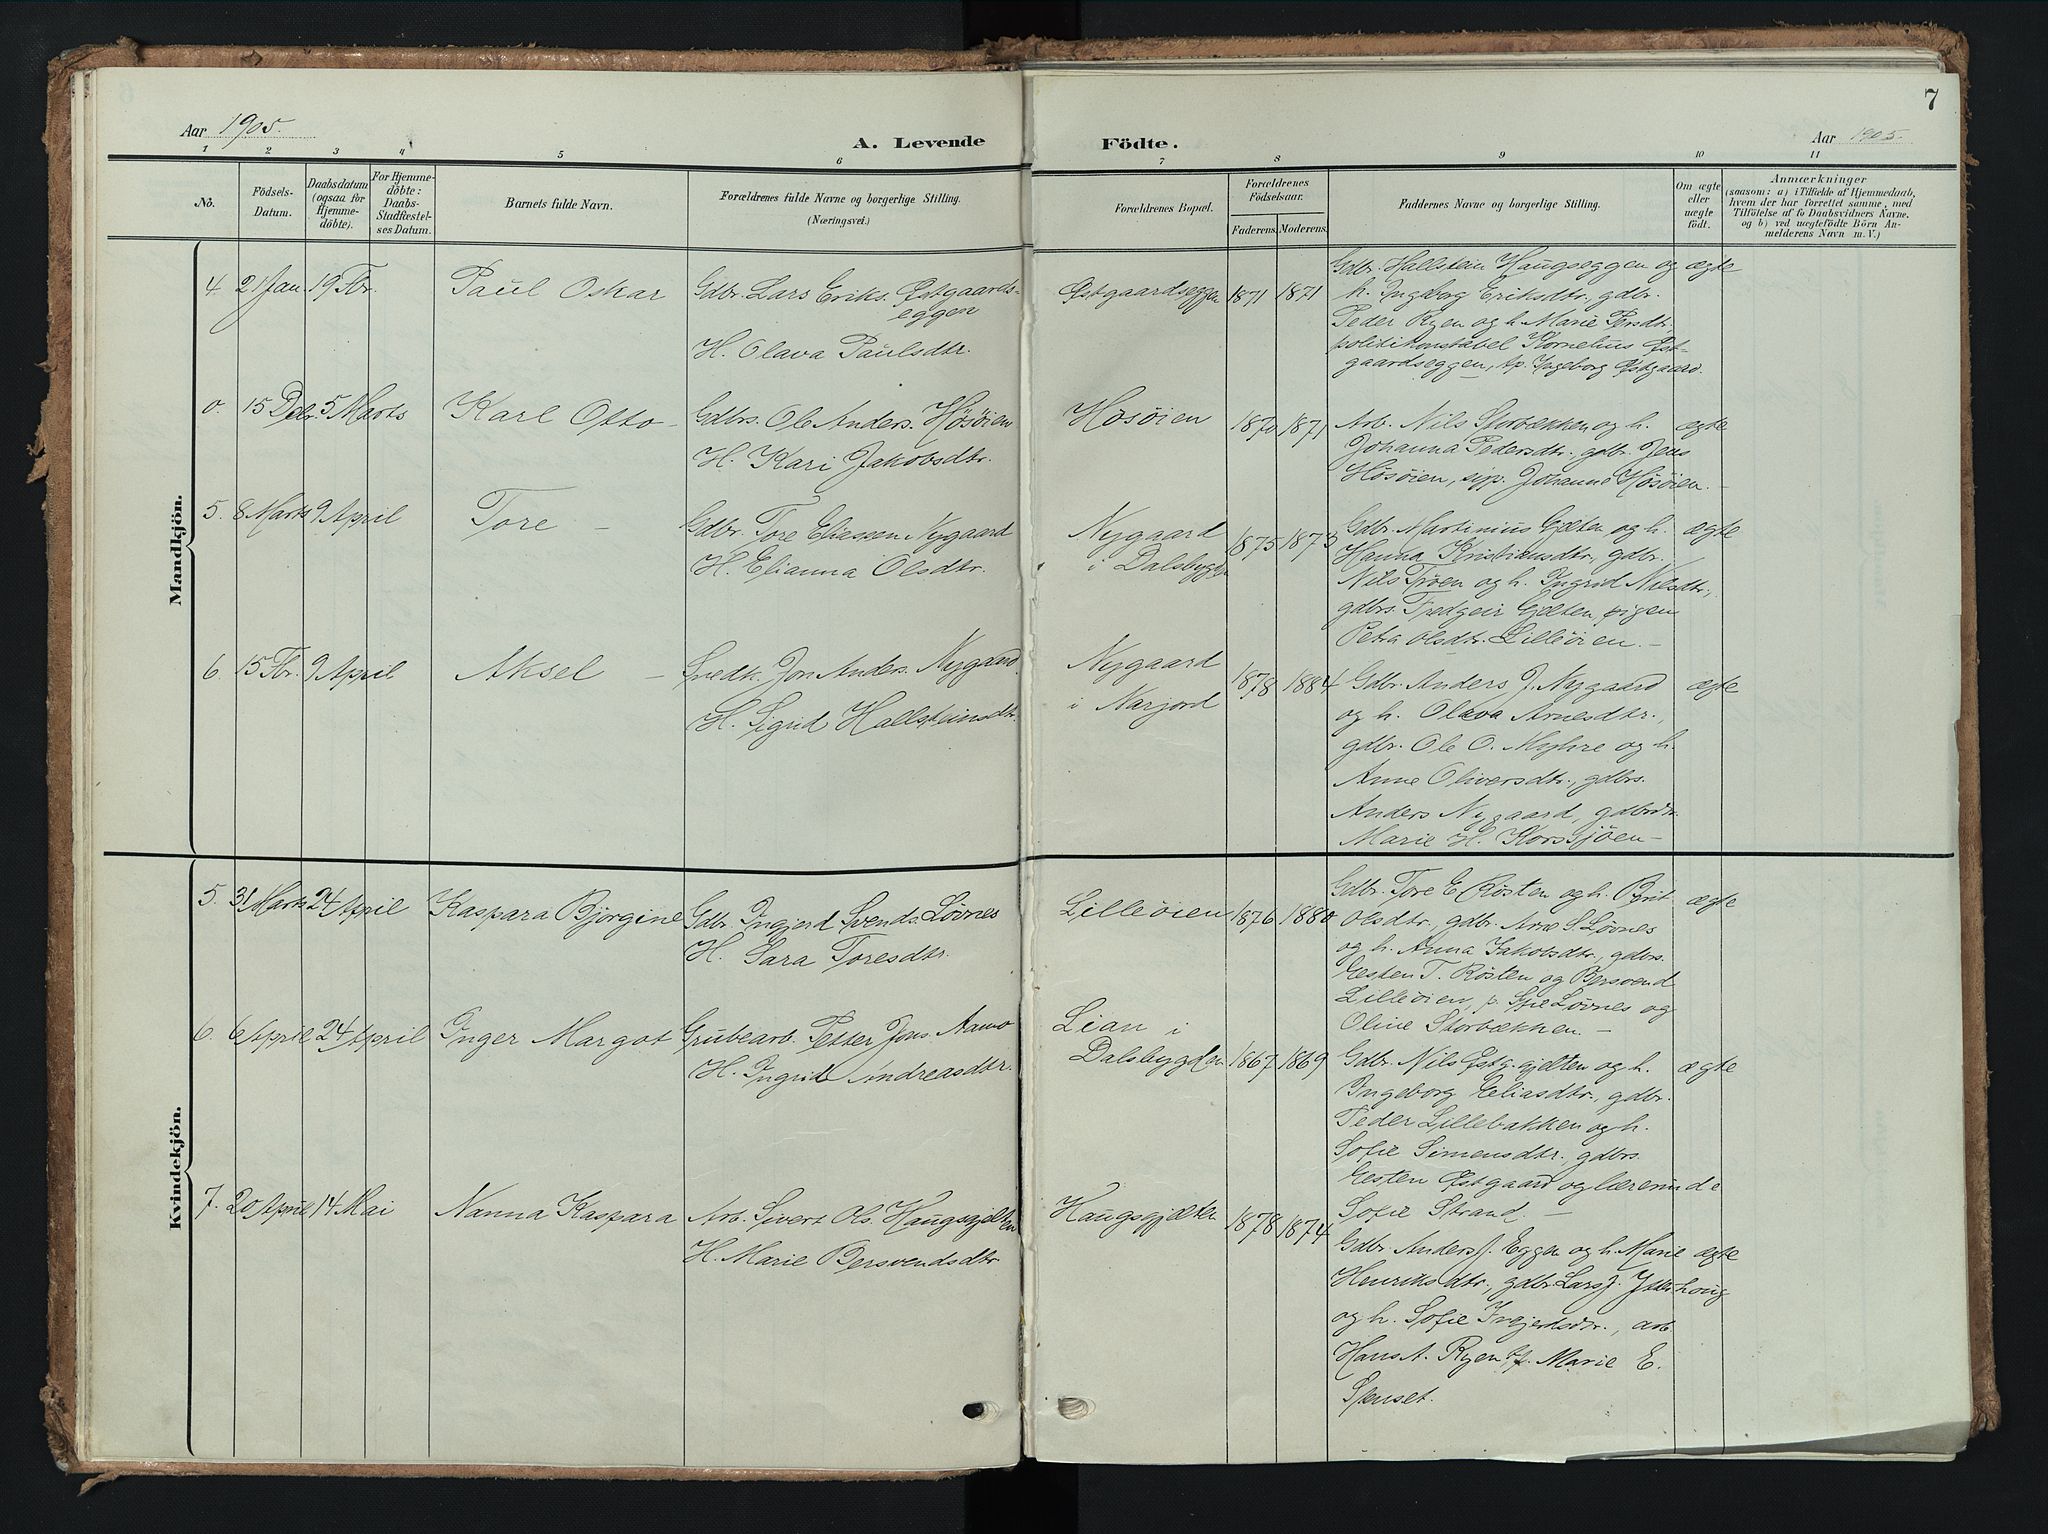 7
Aar 1905.
A. Levende
Födte.
Aar 1905.
1 2 3 4 5 6 7 8 9 10 11
No.
Födsels-
Datum.
Daabsdatum
(ogsaa for
Hjemme-
döbte).
For Hjemme-
döbte:
Daabs-
Stadfæstel-
ses Datum.
Barnets fulde Navn.
Forældrenes fulde Navne og borgerlige Stilling.
(Næringsvei.)
Forældrenes Bopæl.
Forældrenes
Födselsaar.
Faderens. Moderens.
Faddernes Navne og borgerlige Stilling.
Om ægte
eller
uægte
födt.
Anmærkninger
(saasom: a) i Tilfælde af Hjemmedaab,
hvem der har forrettet samme, med
Tilföielse af to Daabsvidners Navne,
og b) ved uægtefödte Börn An-
melderens Navn m. V.)
Mandkjön.
4. 21 Jan. 19 Fbr. Paul Oskar
Gdbr. Lars Eriks. Østgaards-
eggen
H. Olava Paulsdtr.
Østgaardseggen 1871 1871
Gdbr. Hallstein Haugseggen og
h. Ingeborg Eriksdtr., gdbr.
Peder Ryen og h. Marie Persdtr.,
politikonstabel Kornelius Øst-
gaardseggen, tp. Ingeborg Østgaard.
ægte
0. 15 Debr. 5 Marts Karl Otto –
Gdbrs. Ole Anders. Høsøien
H. Kari Jakobsdtr.
Høsøien 1870 1871
Arb. Nils Storbækken og h.
Johanna Pedersdtr., gdbr. Jens
Høsøien, Johanne Høsøien. –
ægte
5. 8 Marts 9 April Tore –
Gdbr. Tore Eliassen Nygaard
H. Elianna Olsdtr.
Nygaard
i Dalsbygden 1875 1873
Gdbr. Martinius Gjelten og h.
Hanna Kristiansdtr., gdbr.
Nils Trøen og h. Ingrid Nilsdtr.,
gdbrs. Fredgeir Gjelten, pigen
Petra Olsdtr. Lilleøien. –
ægte
6. 15 Fbr. 9 April Aksel –
Snedk. Jon Anders. Nygaard
H. Sigrid Hallsteinsdtr.
Nygaard
i Narjord 1878 1884
Gdbr. Anders J. Nygaard
og h. Olava Arnesdtr.,
gdbr. Ole O. Myhre og h.
Anne Oliversdtr., gdbrs.
Anders Nygaard, gdbrdtr.
Marie H. Korssjøen –
ægte
Kvindekjön.
5. 31 Marts 24 April Kaspara Bjørgine
Gdbr. Ingjerd Svends. Løvnes
H. Sara Toresdtr.
Lilleøien 1876 1880
Gdbr. Tore E. Røsten og h. Berit
Olsdtr., gdbr. Arne S. Løvnes
og h. Anna Jakobsdtr., gdbrs.
Esten T. Røsten og Bersvend
Lilleøien, p. Løvnes og
Oline Storbækken. –
ægte
6. 6 April 24 April Inger Margot
Grubearb. Petter Jons. Aamo
H. Ingrid Andreasdtr.
Lian i
Dalsbygden 1867 1869
Gdbr. Nils Østg.gjelten og h.
Ingeborg Eliasdtr., gdbr.
Peder Lillebakken og h.
Sofie Simensdtr., gdbrs.
Esten Østgaard og lærerinde
Sofie Strand. –
ægte
7. 20 April 14 Mai Nanna Kaspara
Arb. Sivert Ols. Haugsgjelten
H. Marie Bersvendsdtr.
Haugsgjelten 1878 1874
Gdbr. Anders J. Eggen og h. Marie
Henriksdtr., gdbr. Lars J. Ytterhoug
og h. Sofie Ingjerdsdtr., arb.
Hans A. Ryen, tp. Marie E.
Spenset.
ægte